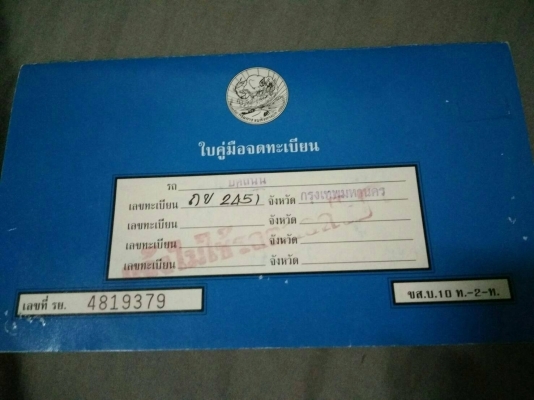 ใบคู่มือจดทะเบียน
รถ
เลขทะเบียน ภข 2451 จังหวัด กรุงเทพมหานคร
เลขทะเบียน จังหวัด
เลขทะเบียน จังหวัด
เลขทะเบียน จังหวัด
เลขที่ รย. 4819379
ขส.บ.10 ท.-2-ท.